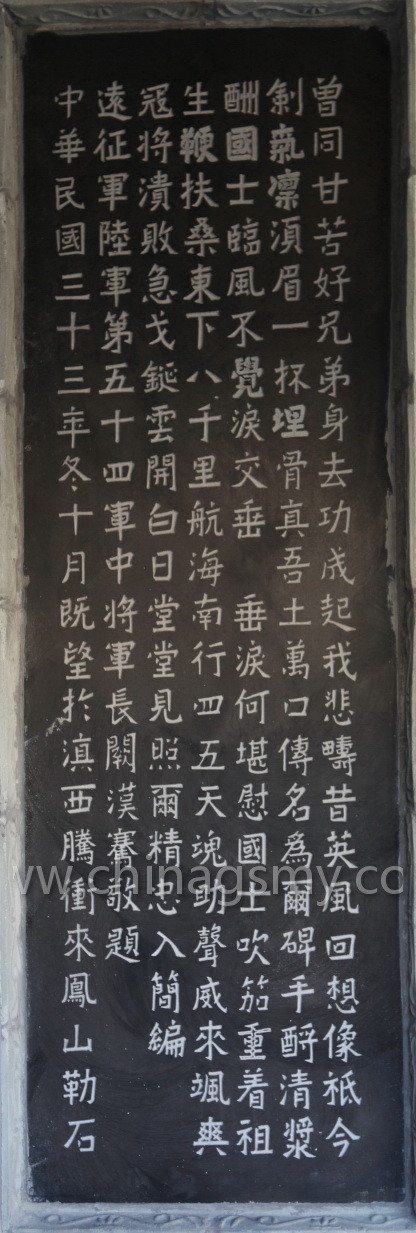 曾同甘苦好兄弟身去功成起我悲疇昔英風回想像祇今
劍氣凜須眉一抔埋骨真吾土萬口傳名爲爾碑手酹清漿
酬國士臨風不覺淚交垂 垂淚何堪慰國士吹笳重着祖
生鞭扶桑東下八千里航海南行四五天魂助聲威來颯爽
寇將潰敗急戈鋋雲開白日堂堂見照爾精忠入簡編
遠征軍陸軍第五十四軍中將軍長闕漢騫敬題
中華民國三十三年冬十月既望於滇西騰衝來鳳山勒石
www.chinagsmy.co